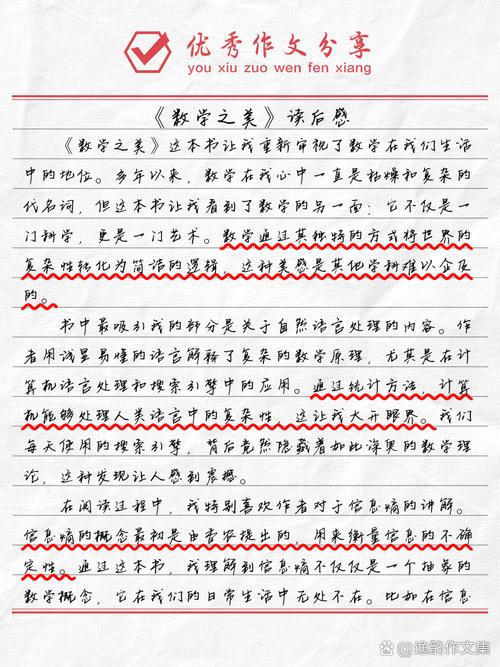 优秀作文分享
you xiu zuo wen fen xiang
《数学之美》读后感
《数学之美》这本书让我重新审视了数学在我们生活
中的地位。多年以来，数学在我心中一直是枯燥和复杂的
代名词，但这本书让我看到了数学的另一面：它不仅是一
门科学，更是一门艺术。数学通过其独特的方式将世界的
复杂性转化为简洁的逻辑，这种美感是其他学科难以企及
的。
书中最吸引我的部分是关于自然语言处理的内容。作
者用浅显易懂的语言解释了复杂的数学原理，尤其是在计
算机语言处理和搜索引擎中的应用。通过统计方法，计算
机能够处理人类语言中的复杂性，这让我大开眼界。我们
每天使用的搜索引擎，背后竟然隐藏着如此深奥的数学理
论，这种发现让人感到震撼。
在阅读过程中，我特别喜欢作者对于信息熵的讲解。
信息熵的概念最初是由香农提出的，用来衡量信息的不确
定性。通过这本书，我理解到信息熵不仅仅是一个抽象的
数学概念，它在我们的日常生活中无处不在。比如在信息
逸韵作文集